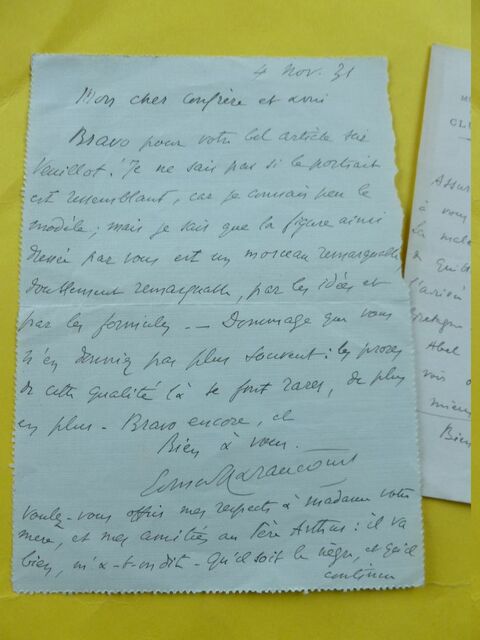 4 Nov. 31
Mon cher Confrère et ami
Bravo pour votre bel article sur
Veuillot ! Je ne sais pas si le portrait
est ressemblant, car je connais peu le
modèle ; mais je sais que la figure ainsi
dressée par vous est un morceau remarquable
doublement remarquable, par les idées et
par les formules. — Dommage que vous
n'en donniez pas plus souvent : les proses
de cette qualité là se font rares, de plus
en plus - Bravo encore, et
Bien à vous.
Voulez-vous offrir mes respects à madame votre
mère, et mes amitiés au Père Arthus : il va
bien, m'a-t-on dit - Qu'il soit le nègre, et qu'il
continue
M
CL
Assur
à vous
la mal
a quitt
l'arrivé
Bretagne
Abel
vois
mieux
Bien